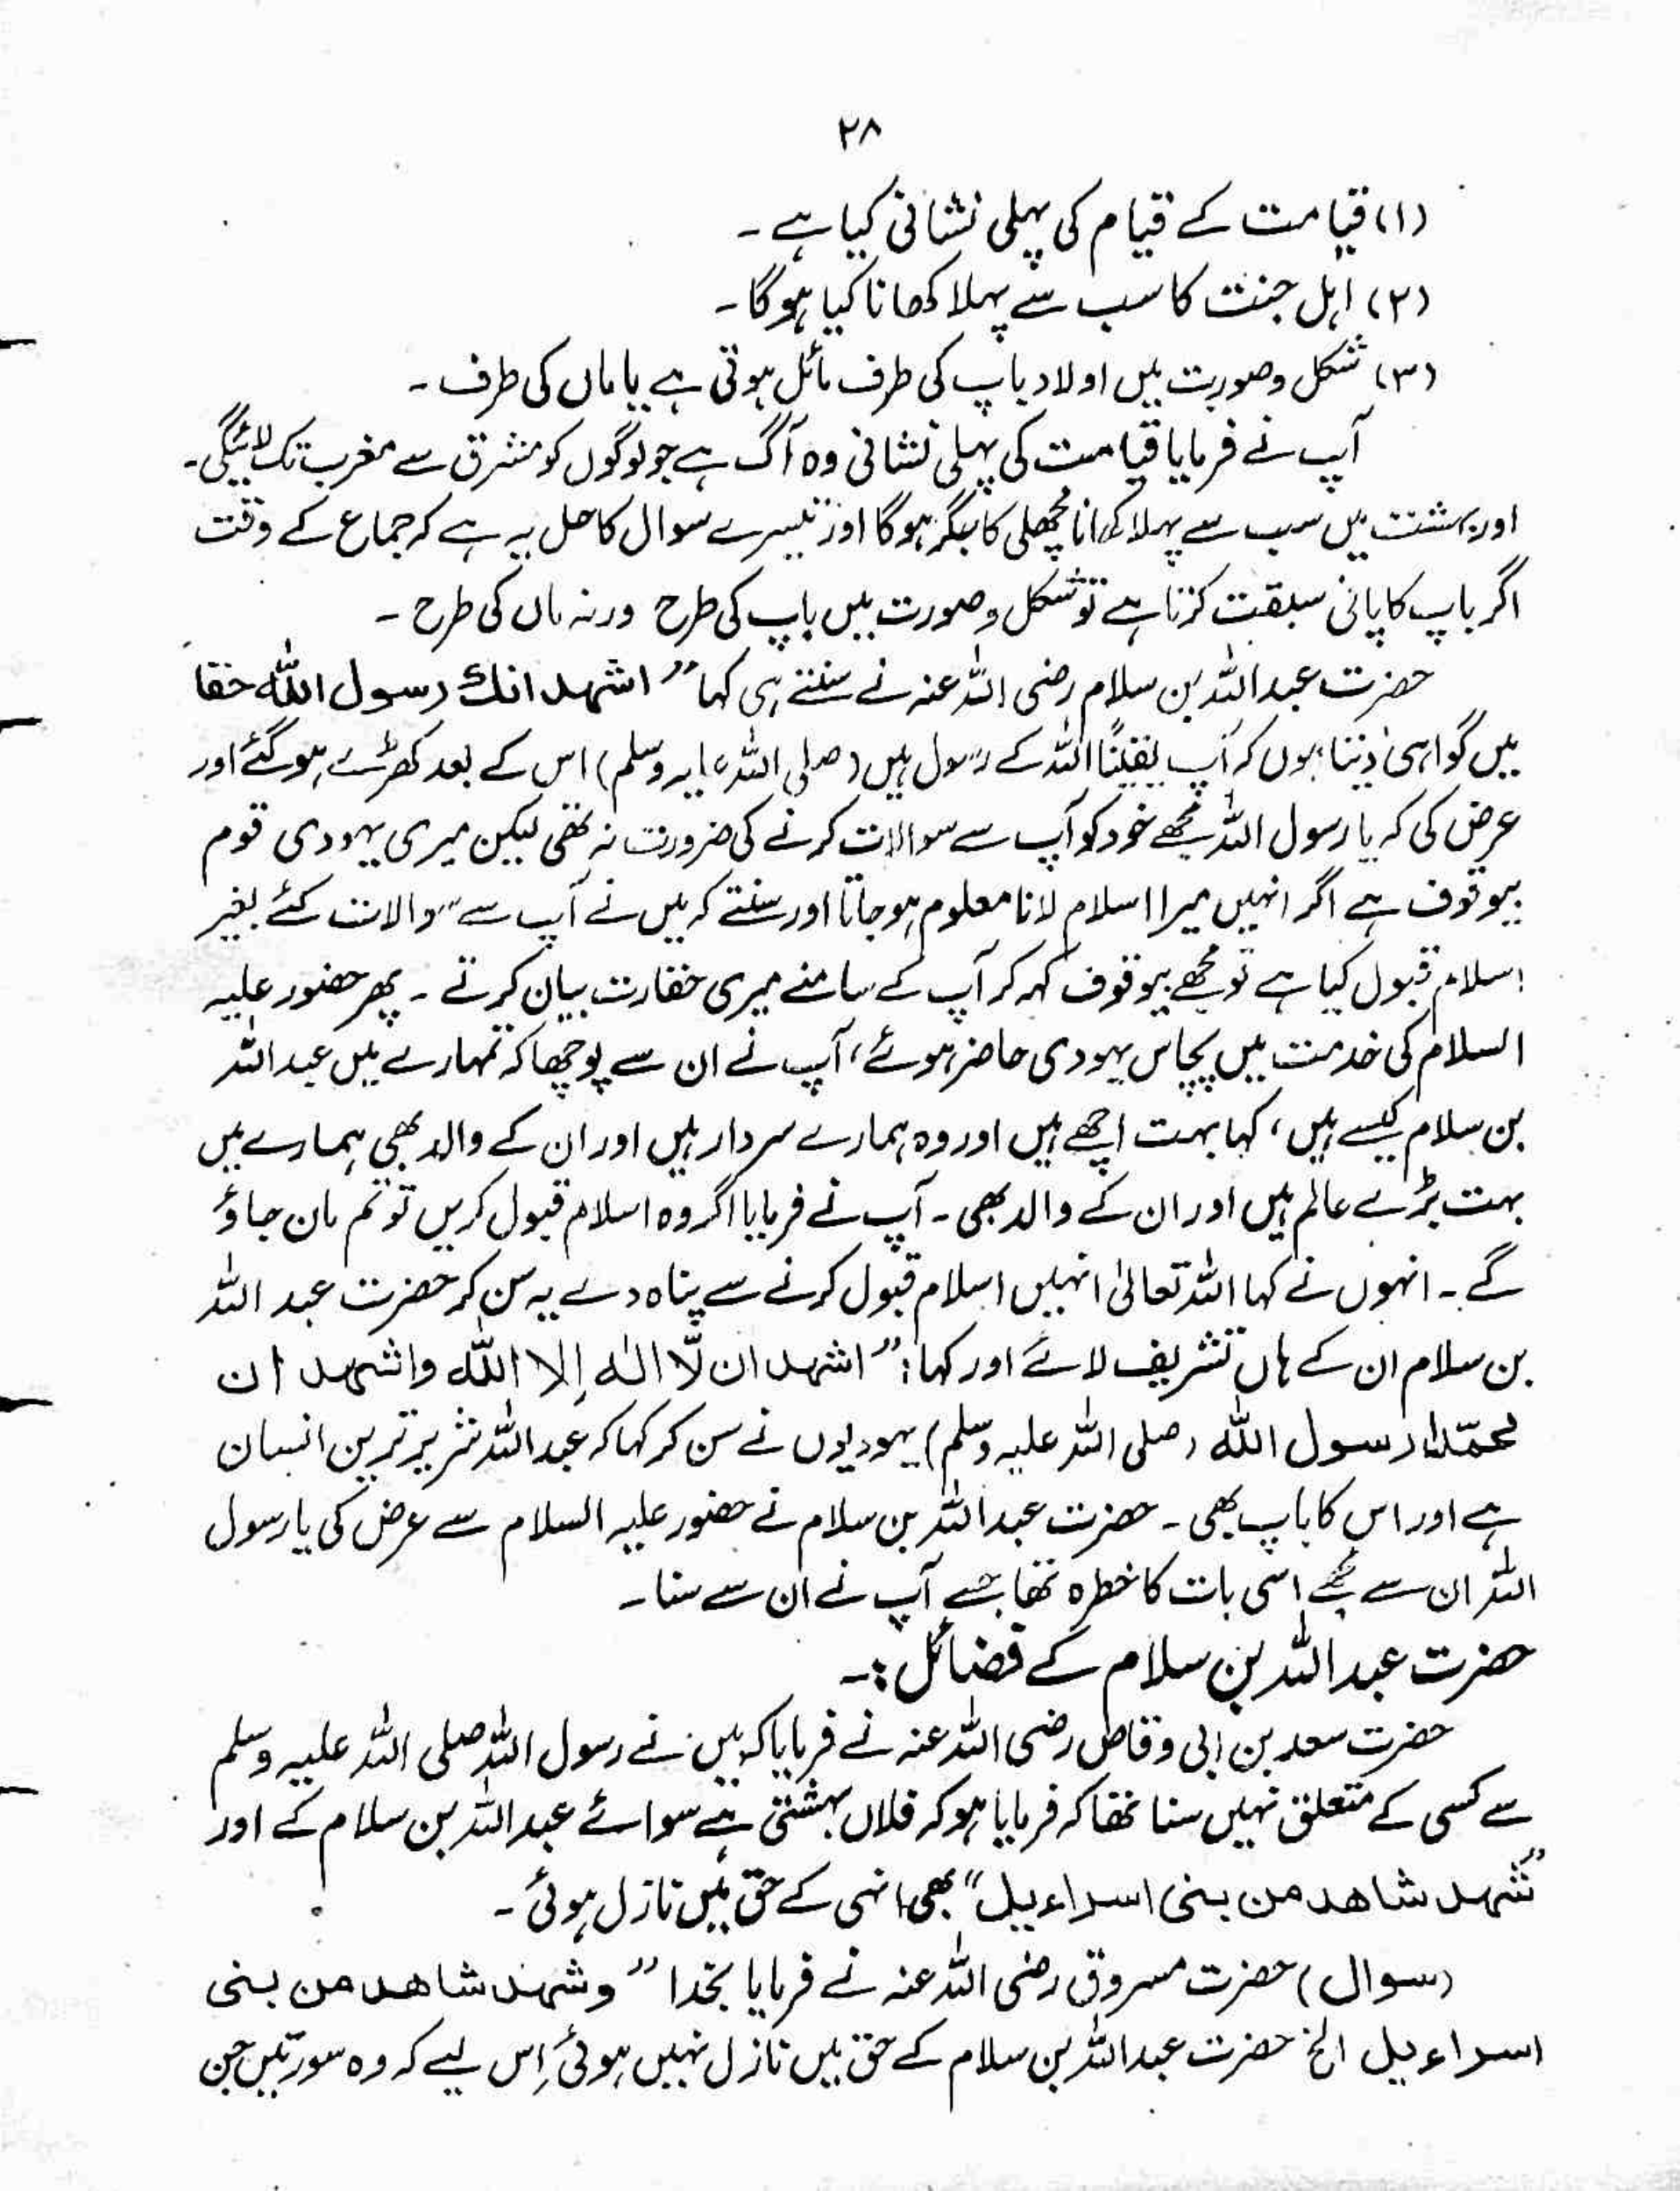 ۲۸
(۱) قیامت کے قیام کی پہلی نشانی کیا ہے ۔
(۲) اہل جنت کا سب سے پہلا کھانا کیا ہوگا ۔
(۳) شکل وصورت میں اولاد باپ کی طرف مائل ہوتی ہے یا ماں کی طرف ۔
آپ نے فرمایا قیامت کی پہلی نشانی وہ آگ ہے جو لوگوں کو مشرق سے مغرب تک لائیگی۔
اور بہشت میں سب سے پہلا کھانا مچھلی کا جگر ہوگا اور تیسرے سوال کا حل یہ ہے کہ جماع کے وقت
اگر باپ کا پانی سبقت کرتا ہے تو شکل وصورت میں باپ کی طرح ورنہ ماں کی طرح ۔
حضرت عبداللہ بن سلام رضی اللہ عنہ نے سنتے ہی کہا ” اشہد انك رسول اللہ حقا
میں گواہی دیتا ہوں کہ آپ یقینًا اللہ کے رسول ہیں (صلی اللہ علیہ وسلم) اس کے بعد کھڑے ہو گئے اور
عرض کی کہ یا رسول اللہ مجھے خود کو آپ سے سوالات کرنے کی ضرورت نہ تھی لیکن میری یہودی قوم
بیوقوف ہے اگر انہیں میرا اسلام لانا معلوم ہو جاتا اور سنتے کہ میں نے آپ سے سوالات کئے بغیر
اسلام قبول کیا ہے تو مجھے بیوقوف کہہ کر آپ کے سامنے میری حقارت بیان کرتے ۔ پھر حضور علیہ
السلام کی خدمت میں پچاس یہودی حاضر ہوئے، آپ نے ان سے پوچھا کہ تمہارے میں عبداللہ
بن سلام کیسے ہیں، کہا بہت اچھے ہیں اور وہ ہمارے سردار ہیں اور ان کے والد بھی ہمارے میں
بہت بڑے عالم ہیں اور ان کے والد بھی ۔ آپ نے فرمایا اگر وہ اسلام قبول کریں تو تم مان جاؤ
گے ۔ انہوں نے کہا اللہ تعالیٰ انہیں اسلام قبول کرنے سے پناہ دے یہ سن کر حضرت عبد اللہ
بن سلام ان کے ہاں تشریف لائے اور کہا : ” اشہد ان لّا الہ إلا اللہ واشہد ان
محمّدا رسول اللہ (صلی اللہ علیہ وسلم) یہودیوں نے سن کر کہا کہ عبداللہ شریر ترین انسان
ہے اور اس کا باپ بھی ۔ حضرت عبداللہ بن سلام نے حضور علیہ السلام سے عرض کی یا رسول
اللہ ان سے مجھے اسی بات کا خطرہ تھا جسے آپ نے ان سے سنا ۔
حضرت عبداللہ بن سلام کے فضائل :۔
حضرت سعد بن ابی وقاص رضی اللہ عنہ نے فرمایا کہ میں نے رسول اللہ صلی اللہ علیہ وسلم
سے کسی کے متعلق نہیں سنا تھا کہ فرمایا ہو کہ فلاں بہشتی ہے سوائے عبداللہ بن سلام کے اور
”شہد شاھد من بنی اسراءیل“ بھی انہی کے حق میں نازل ہوئی ۔
(سوال) حضرت مسروق رضی اللہ عنہ نے فرمایا بخدا ” وشہد شاھد من بنی
اسراءیل الخ حضرت عبداللہ بن سلام کے حق میں نازل نہیں ہوئی اِس لیے کہ وہ سورتیں جن